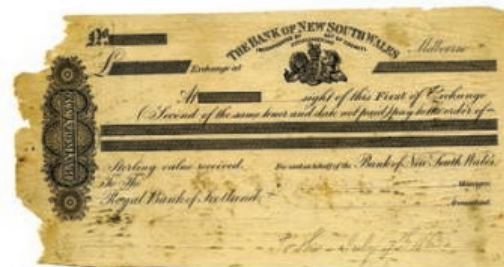 No
THE BANK OF NEW SOUTH WALES
INCORPORATED BY ACT OF
Melbourne
£ Exchange at
At sight of this First of Exchange
(Second of the same tenor and date not paid) pay to the order of
Sterling value received. For and on behalf of the Bank of New South Wales,
To The Manager.
Royal Bank of Scotland, Accountant.